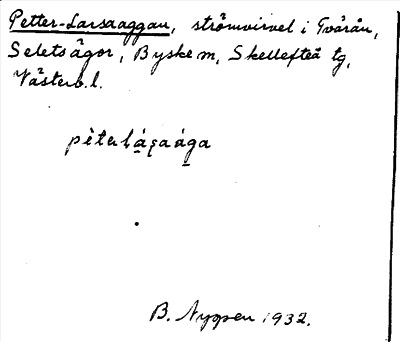 Petter-Larsaaggan, strömvirvel i Tvärån,
Seletsågor, Byske m, Skellefteå tg,
Västerb.l.
pètərlásaága
B. Nygren 1932.